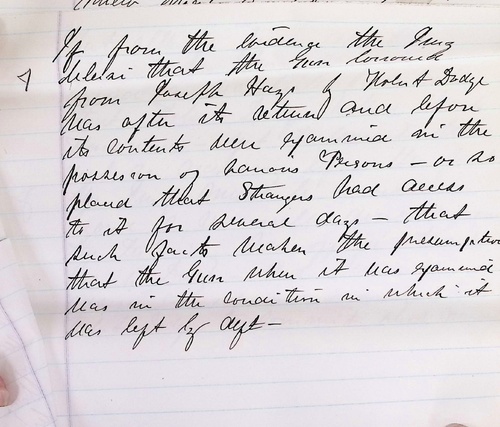 If from the evidence the Jury
7 believe that the Gun borrowed
from Joseph Hays by Robert Dodge
was after its return and before
its contents were examined in the
possession of various Persons – or so
placed that Strangers had access
to it for several days – that
such facts weaken the presumption
that the Gun when it was examined
was in the condition in which it
was left by deft –